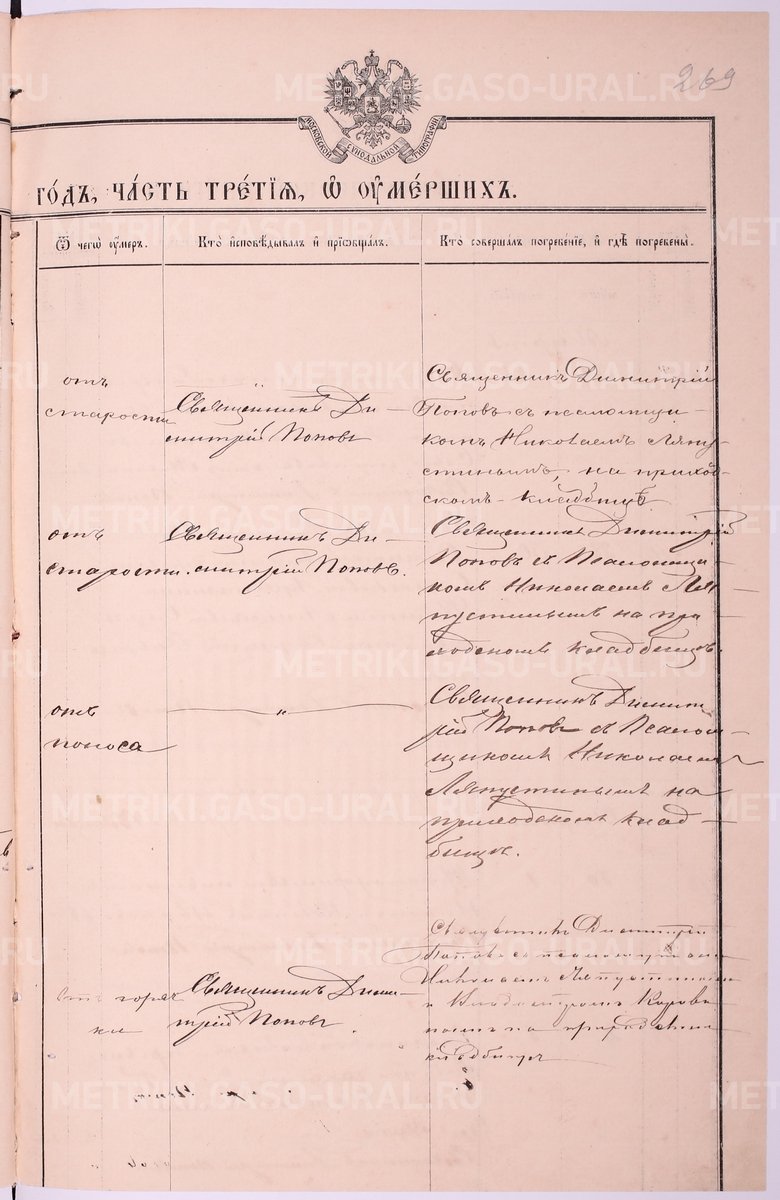 269
МОСКОВСКОЙ СѴНОДАЛЬНОЙ ТИПОГРАФІИ
ГО́ДЪ, ЧА́СТЬ ТРЕ́ТІЯ, Ѡ҆ ОУ҆МЕ́РШИХЪ.
Ѿ чегѡ̀ ᲂу҆́меръ.
Кто̀ и҆сповѣ́дывалъ и҆ прїѡбща́лъ.
Кто̀ соверша́лъ погребе́нїе, и҆ гдѣ̀ погребены̀.
отъ
старости
Священникъ Ди-
митрій Поповъ
Священникъ Димитрій
Поповъ съ псаломщи-
комъ Николаемъ Ляпу-
стинымъ, на приход-
скомъ кладбищѣ.
отъ
старости.
Священникъ Ди-
митрій Поповъ.
Священникъ Димитрій
Поповъ съ Псаломщи-
комъ Николаемъ Ляп-
устинымъ на при-
ходскомъ кладбищѣ.
отъ
поноса
"
Священникъ Димит-
рій Поповъ съ Псалом-
щикомъ Николаемъ
Ляпустинымъ на
приходскомъ клад-
бищѣ.
Отъ горяч
ки
Священникъ Дими-
трій Поповъ.
Священникъ Димитрій
Поповъ съ псаломщикомъ
Николаемъ Ляпустинымъ
и
на приходскомъ
кладбищѣ
METRIKI.GASO-URAL.RU